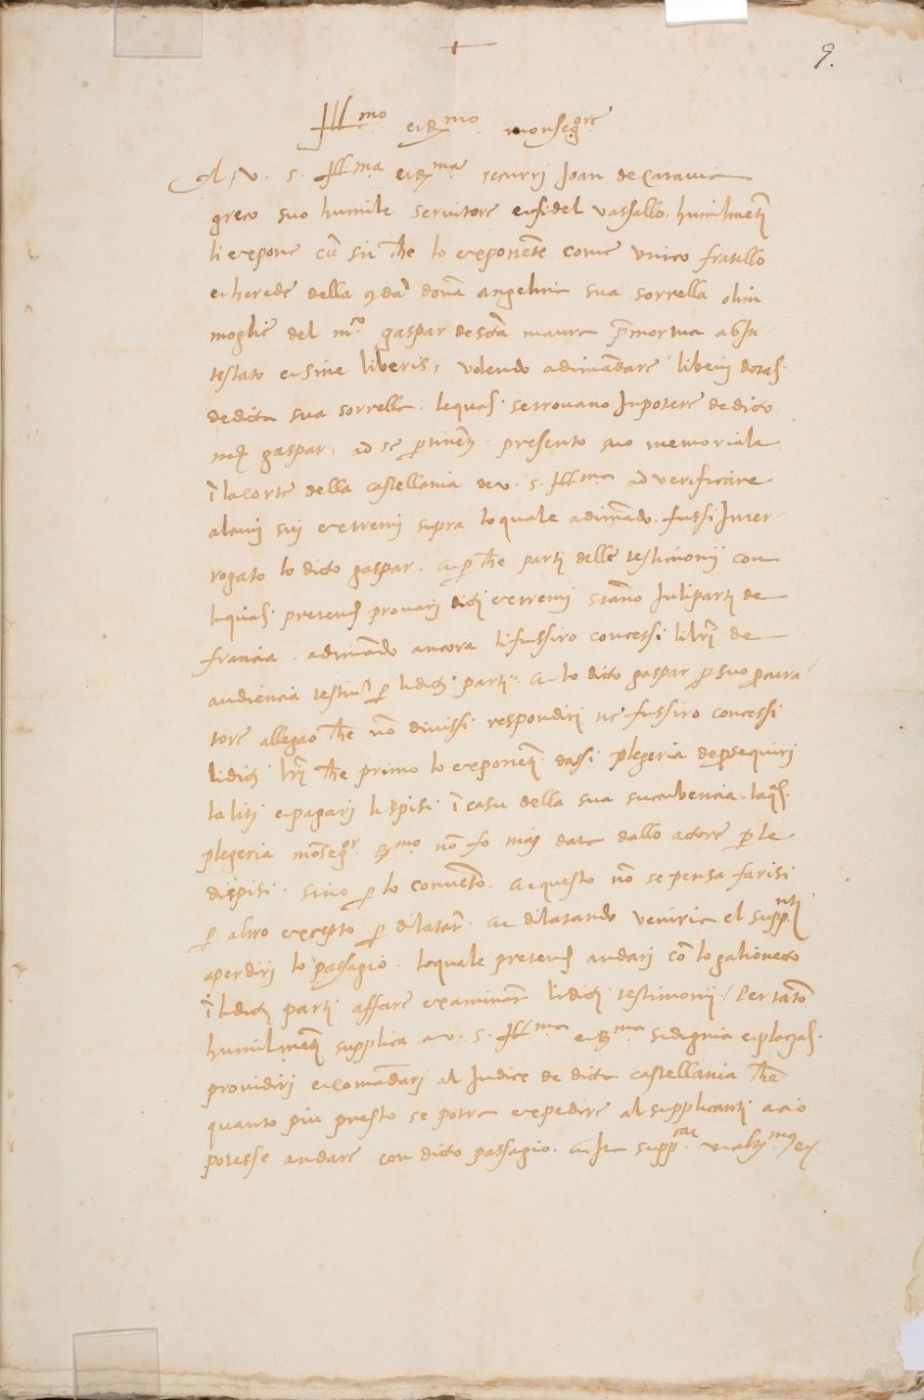 +
9.
Ill^mo et R^mo monseg^ore
A V. S. Ill^ma et R^ma recurri Joan de Caravia
greco suo humile servitore et fidel vassallo. humilmet̃
li expone cũ sit che lo exponẽte come unico fratello
et herede della q̃daᷠ dona angelina sua sorrella olim
moglie del m^co gaspar de scta maura p̃mortua ab In
testato et sine liberis, volendo adimãdare li beni dotaˡ.
de dicta sua sorrella. lequaˡ. se trovano In potere de dicto
gaspar, ad se ptinẽt. presento suo memoriale
ĩ la corte della castellania de v. s. Ill^ma ad verificare
alcuni soi extremi supra lo quale adimãdo. fussi Inter
rogato lo dicto gaspar. et p che parti delle testimonii con
liquaˡ pretenᵈ provari dicti extremi stãno In li parti de
francia. adimãdo ancora li fussiro concessi li lrĩ de
audiencia p li dicti parti. et lo dicto gaspar p suo pcura
tore allegao che nõ divissi respondiri ne fussiro concessi
li dicti lrĩ che primo lo exponent. dassi plegeria de psequiri
la liti et pagari li spisi ĩ casu della sua sucubencia. laqˡ.
plegeria mõseg^or R^mo nõ fo mai data dallo actore p le
dispisi. sino p lo convẽto. et questo nõ se pensa farisi
p altro excepto p dilatar. et dilatando veniria el supp^nti
a perdiri lo passagio. loquale pretenᵈ andari cõ lo galionecto
ĩ li dicti parti affare examinar li dicti testimonii. Pertãto
humilmẽt supplica a v. s. Ill^ma et R^ma si dignia et placzaˡ.
providiri et comãdari al Judice de dicta castellania che
quanto piu presto se potra expedire al supplicanti acio
potesse andare con dicto passagio. et Ita supp^cat